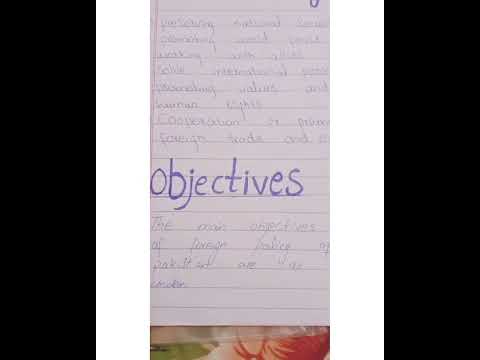 preserving national
promoting world peace
working with allies
solve international
promoting values and
human rights
Cooperation or
foreign trade and
objectives
The main objectives
of foreign policy of
pakistan are as
under